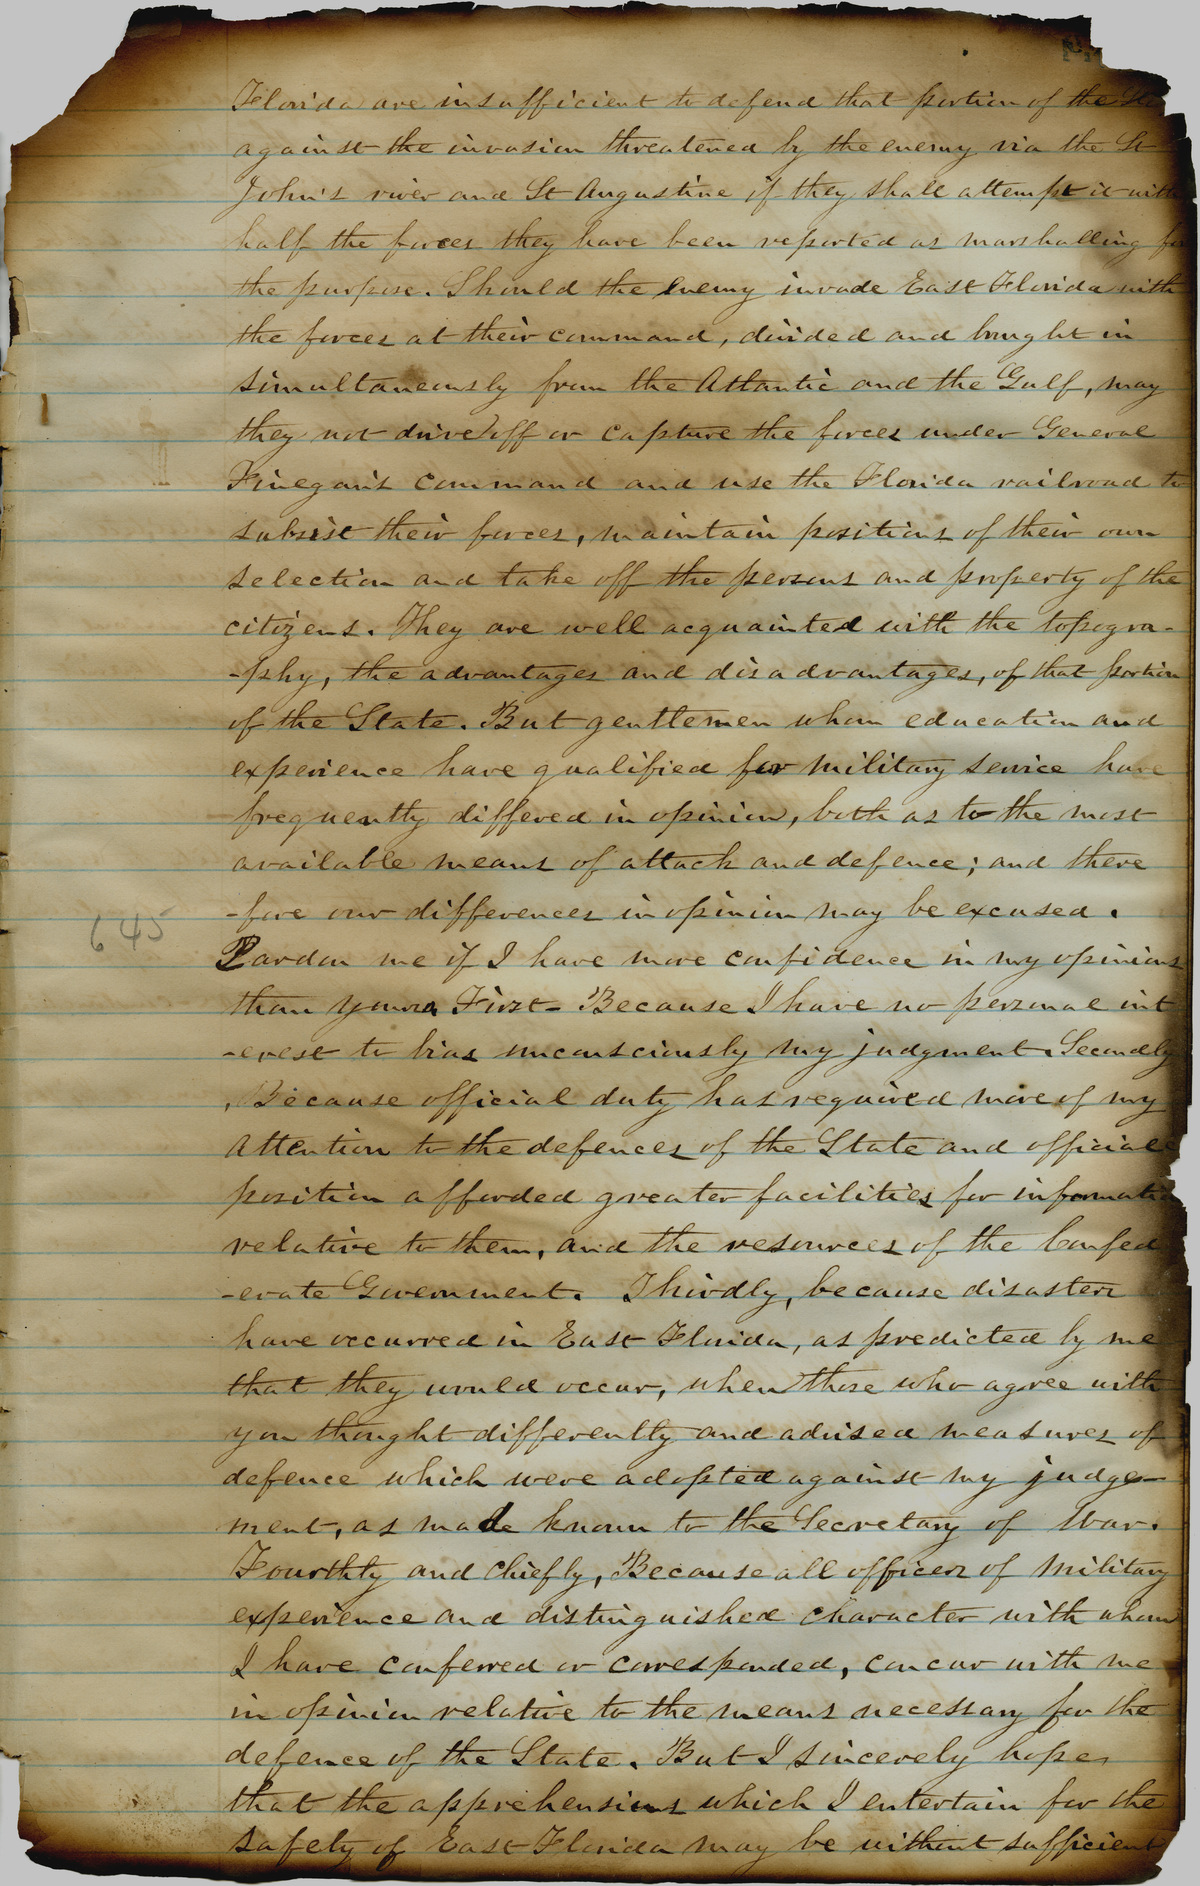 Florida are insufficient to defend that portion of the
against the invasion threatened by the enemy via the St
John's river and St Augustine if they shall attempt it with
half the forces they have been reported as marshalling for
the purpose. Should the enemy invade East Florida with
the forces at their command, divided and brought in
simultaneously from the Atlantic and the Gulf, may
they not drive off or capture the forces under General
Finegan's command and use the Florida railroad to
subsist their forces, maintain positions of their own
selection and take off the persons and property of the
citizens. They are well acquainted with the topogra-
-phy, the advantages and disadvantages, of that portion
of the State. But gentlemen whom education and
experience have qualified for military service have
frequently differed in opinion, both as to the most
available means of attack and defence; and there
-fore our differences in opinion may be excused.
645
Pardon me if I have more confidence in my opinions
than yours First- Because I have no personal int
-erest to bias unconsciously my judgment. Secondly
, Because official duty has required more of my
attention to the defences of the State and official
position afforded greater facilities for information
relative to them, and the resources of the Confed
-erate Government. Thirdly, because disasters
have occurred in East Florida, as predicted by me
that they would occur, when those who agree with
you thought differently and advised measures of
defence which were adopted against my judge-
ment, as made known to the Secretary of War.
Fourthly and chiefly, Because all officers of military
experience and distinguished character with whom
I have conferred or corresponded, concur with me
in opinion relative to the means necessary for the
defence of the State. But I sincerely hope,
that the apprehensions which I entertain for the
safety of East Florida may be without sufficient